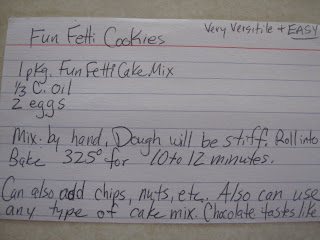 Very Versitile + EASY
Fun Fetti Cookies
1 pkg. Fun Fetti Cake Mix
1/3 C. oil
2 eggs
Mix by hand. Dough will be stiff. Roll into
Bake 325° for 10 to 12 minutes.
Can also add chips, nuts, etc. Also can use
any type of cake mix. Chocolate tastes like